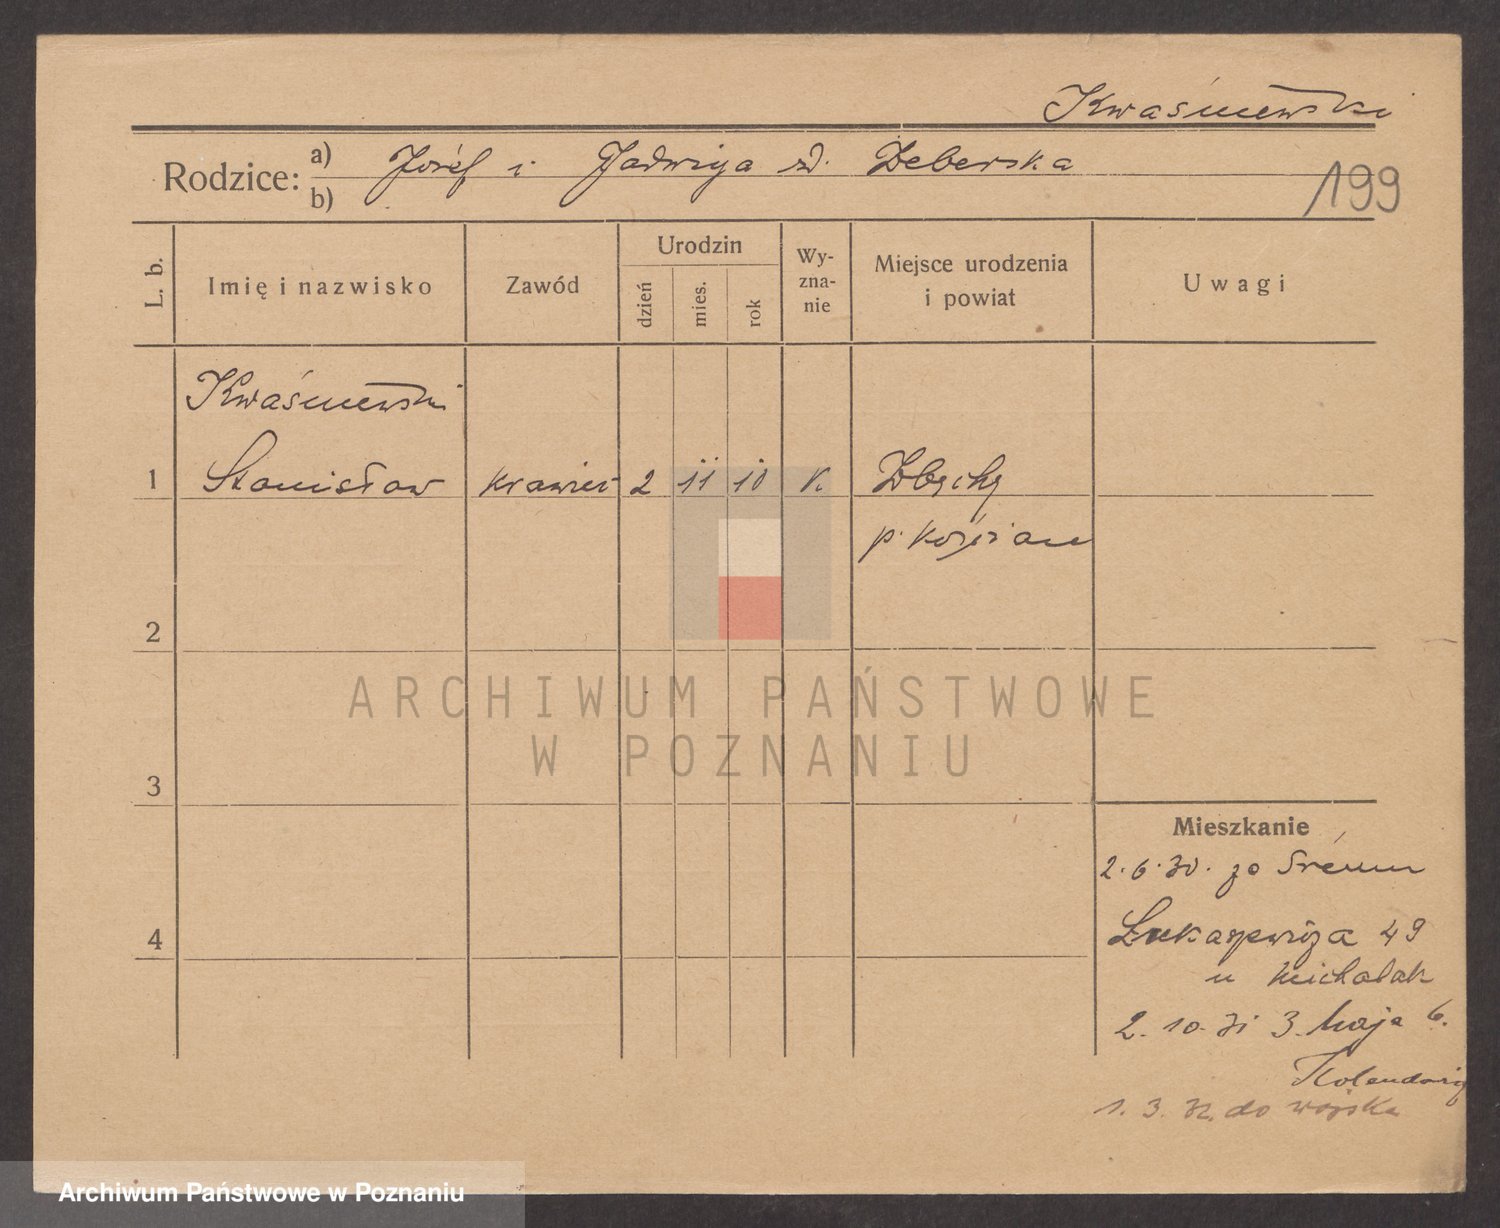 Kwaśniewski
Rodzice: a) Józef i Jadwiga zd. Deberska
b)
199
L. b.
Imię i nazwisko
Zawód
Urodzin
dzień
mies.
rok
Wy-
zna-
nie
Miejsce urodzenia
i powiat
Uwagi
Kwaśniewski
1 Stanisław krawiec 2 11 10 k. Zbęchy
p. Kościan
2
3
4
ARCHIWUM PAŃSTWOWE
W POZNANIU
Mieszkanie
2.6.30. ze Śremu
49
u Michalak
2.10.31 3. Maja 6.
1.3.32. do wojska
Archiwum Państwowe w Poznaniu